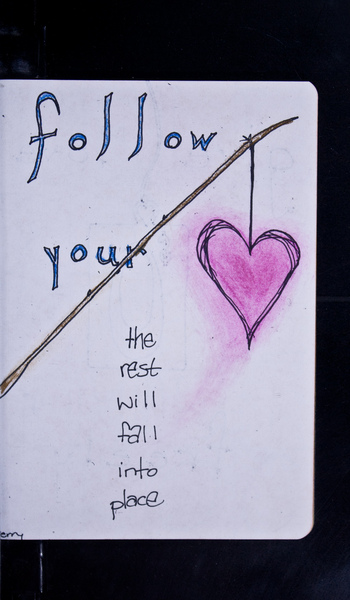 follow
your
the
rest
will
fall
into
place